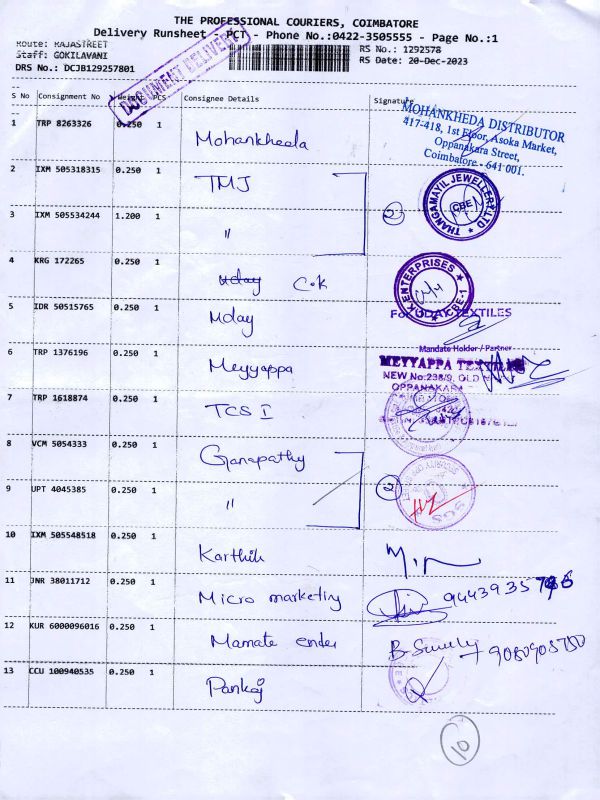 THE PROFESSIONAL COURIERS, COIMBATORE
Delivery Runsheet - PCT - Phone No.:0422-3505555 - Page No.:1
Route: RAJASTREET
RS No.: 1292578
Staff: GOKILAVANI
RS Date: 20-Dec-2023
DRS No.: DCJB129257801
DOCUMENT DELIVERY
S No Consignment No Weight PCS Consignee Details Signature
1 TRP 8263326 0.250 1 Mohankheda
MOHANKHEDA DISTRIBUTOR
417-418, 1st Floor, Asoka Market,
Oppanakara Street,
Coimbatore - 641 001.
2 IXM 505318315 0.250 1 TMJ
THANGAMAYIL JEWELLERY LTD
CBE
3 IXM 505534244 1.200 1 "
2
4 KRG 172265 0.250 1 Uday C.K
K ENTERPRISES
CBE-1
5 IDR 50515765 0.250 1 Uday
For UDAY TEXTILES
Mandate Holder / Partner
6 TRP 1376196 0.250 1 Meyyappa
MEYYAPPA TEXTILES
NEW No:238/9, OLD
OPPANAKARA
7 TRP 1618874 0.250 1 TCS I
8 VCM 5054333 0.250 1 Ganapathy
9 UPT 4045385 0.250 1 "
2
10 IXM 505548518 0.250 1 Karthik
11 JNR 38011712 0.250 1 Micro marketing
12 KUR 6000096016 0.250 1 Mamate ender
9080905750
13 CCU 100940535 0.250 1 Pankaj
10